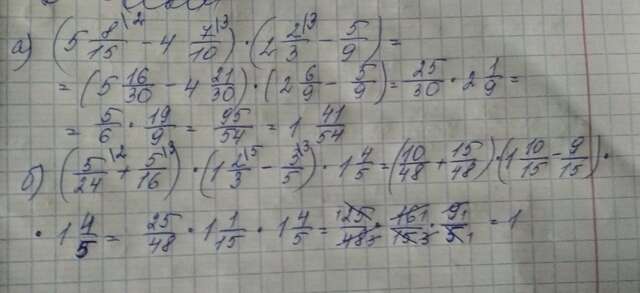 а) (5 8/15 \2 − 4 7/10 \3) · (2 2/3 \3 − 5/9) =
= (5 16/30 − 4 21/30) · (2 6/9 − 5/9) = 25/30 · 2 1/9 =
= 5/6 · 19/9 = 95/54 = 1 41/54
б) (5/24 \2 + 5/16 \3) · (1 2/3 \5 − 3/5 \3) · 1 4/5 = (10/48 + 15/48) · (1 10/15 − 9/15) ·
· 1 4/5 = 25/48 · 1 1/15 · 1 4/5 = 25/48 · 16/15 · 9/5 = 1